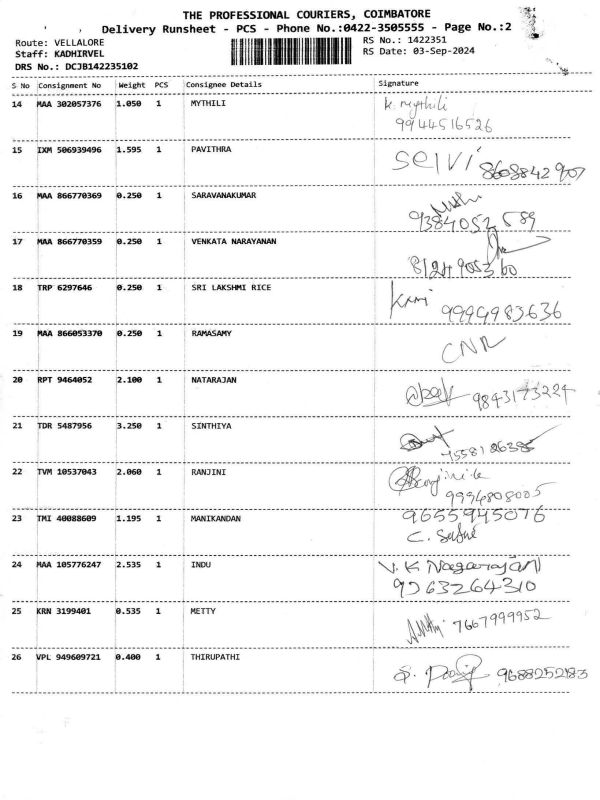 THE PROFESSIONAL COURIERS, COIMBATORE
Delivery Runsheet - PCS - Phone No.:0422-3505555 - Page No.:2
Route: VELLALORE RS No.: 1422351
Staff: KADHIRVEL RS Date: 03-Sep-2024
DRS No.: DCJB142235102
S No Consignment No Weight PCS Consignee Details Signature
14 MAA 302057376 1.050 1 MYTHILI K. Mythili
9944516526
15 IXM 506939496 1.595 1 PAVITHRA Selvi 8608842907
16 MAA 866770369 0.250 1 SARAVANAKUMAR
9384052589
17 MAA 866770359 0.250 1 VENKATA NARAYANAN
8124905360
18 TRP 6297646 0.250 1 SRI LAKSHMI RICE
9994983636
19 MAA 866053370 0.250 1 RAMASAMY CNR
20 RPT 9464052 2.100 1 NATARAJAN 9843173224
21 TDR 5487956 3.250 1 SINTHIYA
22 TVM 10537043 2.060 1 RANJINI
9994808005
23 TMI 40088609 1.195 1 MANIKANDAN 9655945076
24 MAA 105776247 2.535 1 INDU V. K Nagarajan
9063264310
25 KRN 3199401 0.535 1 METTY 7667999952
26 VPL 949609721 0.400 1 THIRUPATHI 9688252183